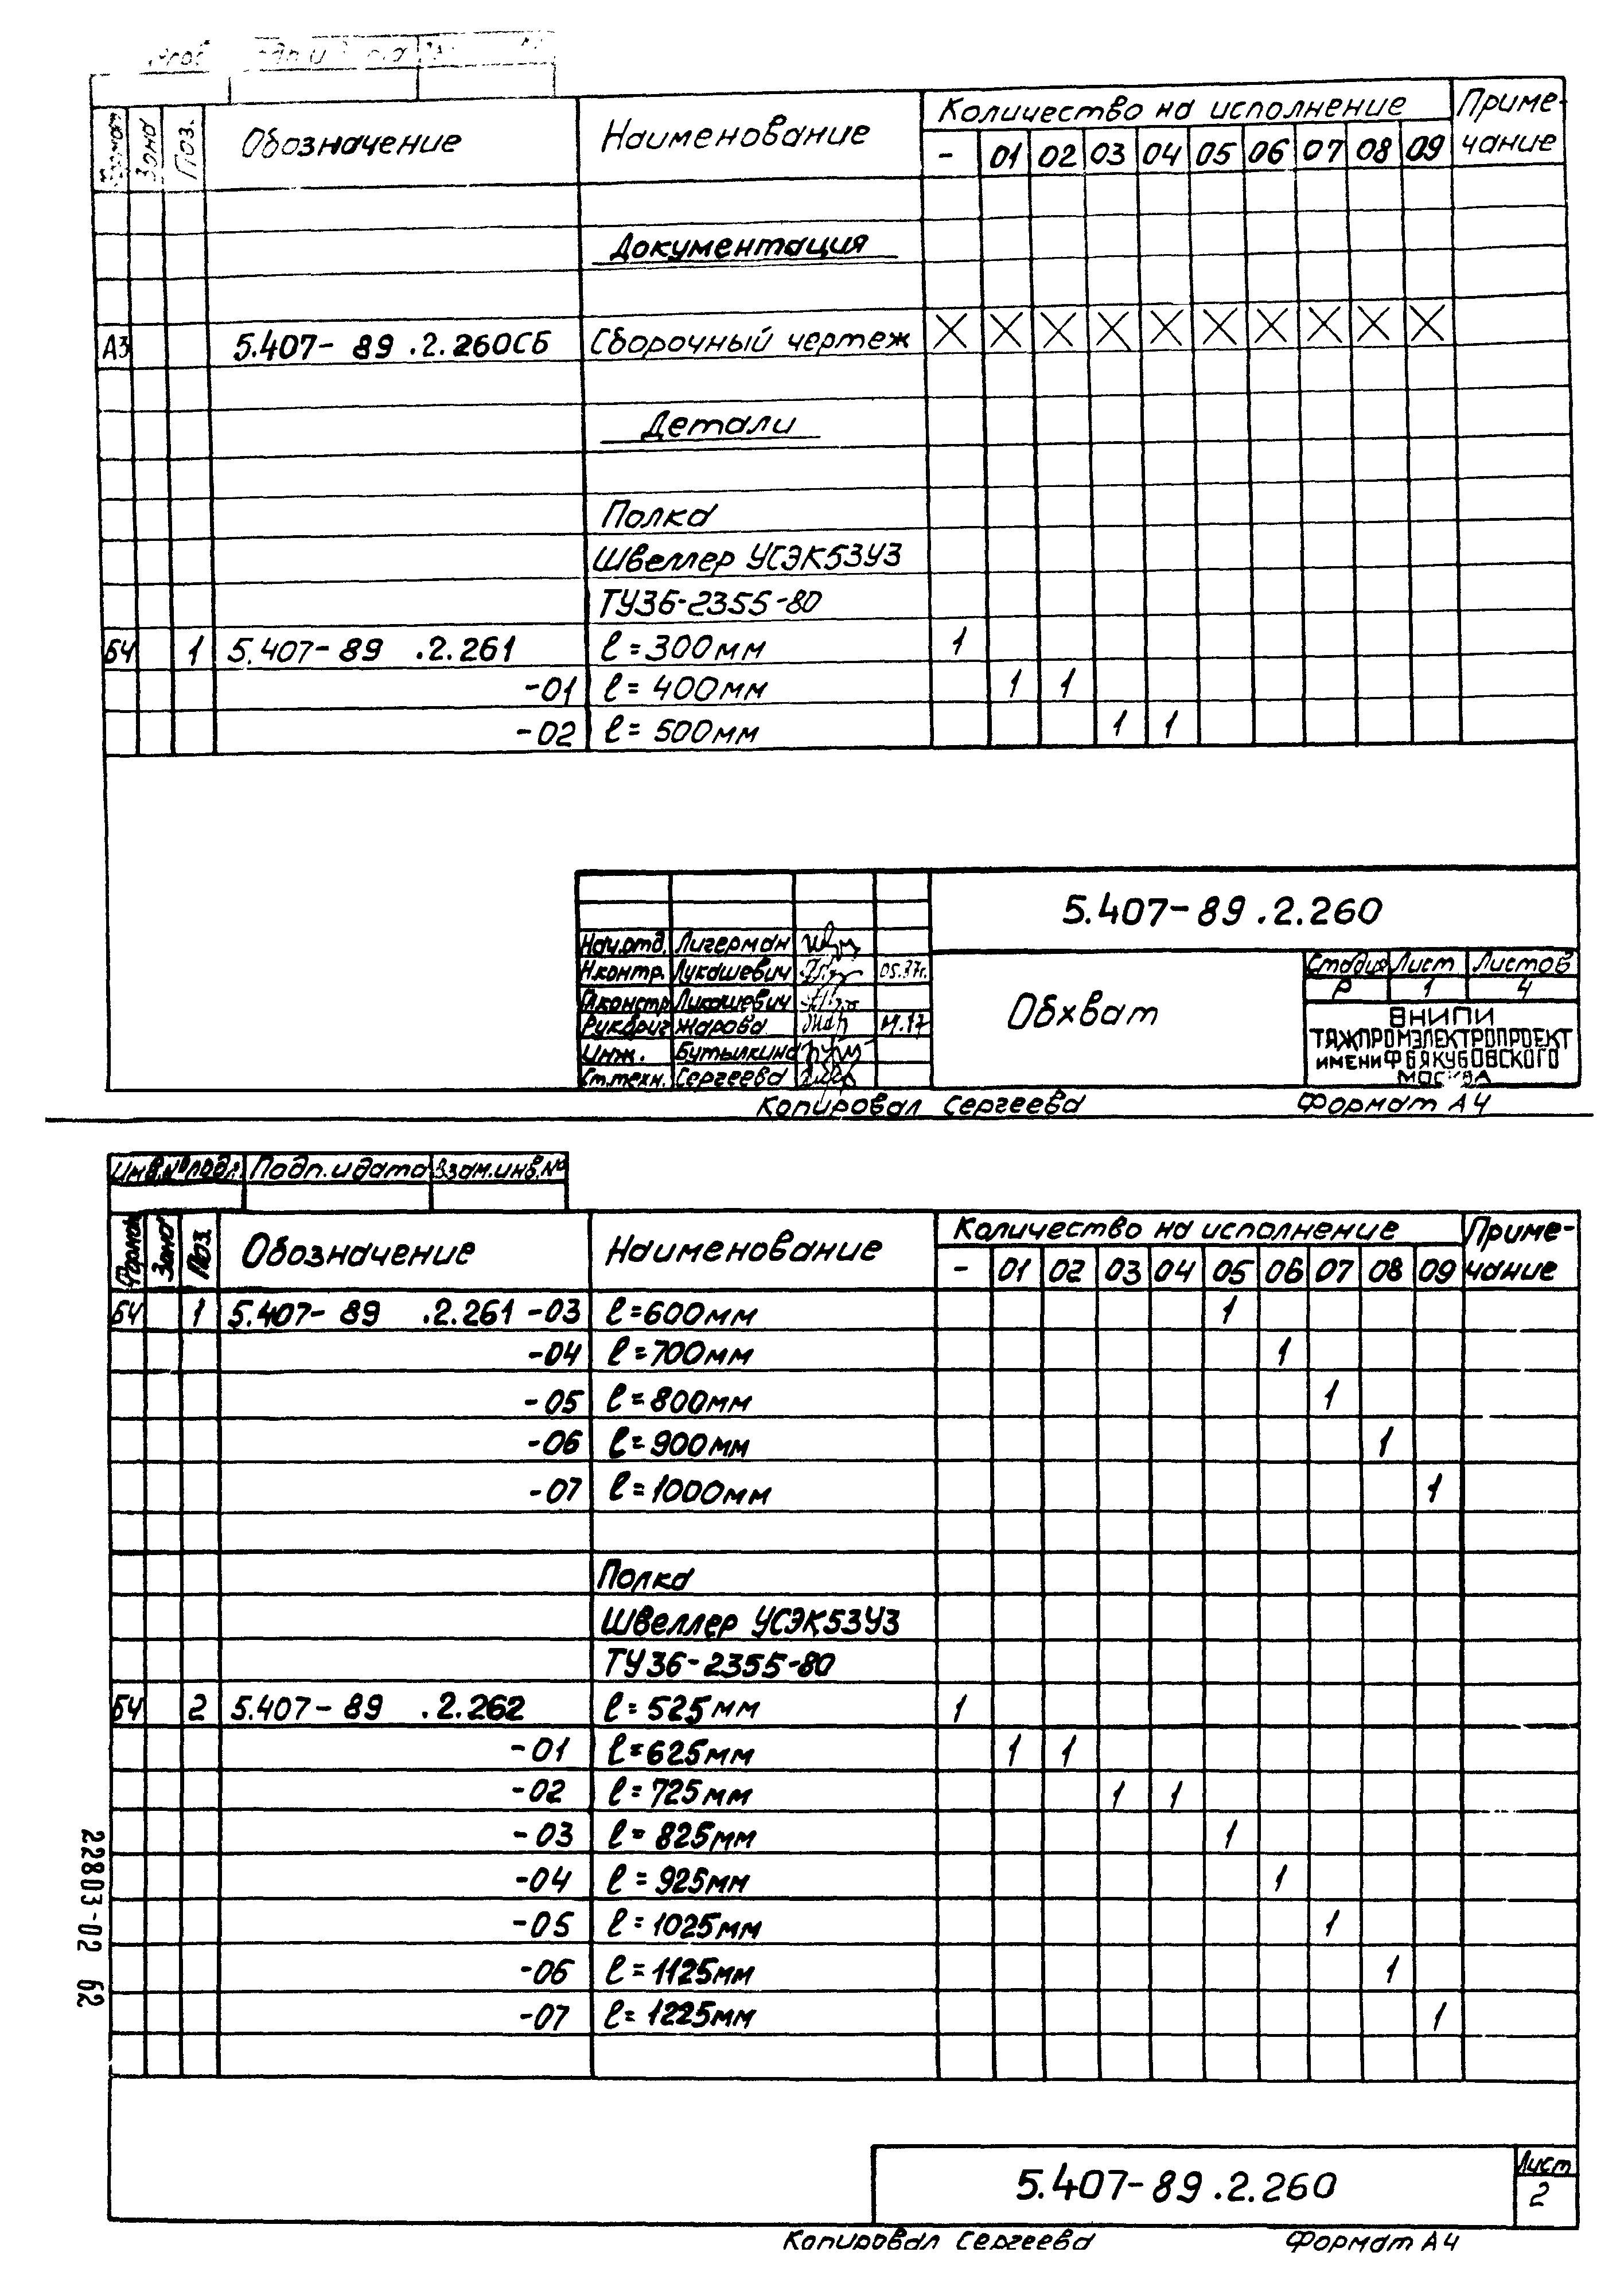 Формат Зона Поз. Обозначение Наименование Количество на исполнение Приме-чание
- 01 02 03 04 05 06 07 08 09
Документация
А3 5.407-89.2.260СБ Сборочный чертеж X X X X X X X X X X
Детали
Полка
Швеллер УСЭК53У3
ТУ36-2355-80
БЧ 1 5.407-89 .2.261 ℓ=300мм 1
-01 ℓ=400мм 1 1
-02 ℓ=500мм 1 1
5.407-89.2.260
Нач.отд. Лигерман
Н.контр. Лукашевич
Гл.констр. Лукашевич
Рук.бриг. Жарова
Инж. Бутылкина
Ст.техн. Сергеева
Обхват
Стадия Лист Листов
Р 1 4
ВНИПИ
ТЯЖПРОМЭЛЕКТРОПРОЕКТ
ИМЕНИ Ф.Б.ЯКУБОВСКОГО
МОСКВА
Копировал Сергеева Формат А4
Инв.№ подл. Подп. и дата Взам.инв.№
Формат Зона Поз. Обозначение Наименование Количество на исполнение Приме-чание
- 01 02 03 04 05 06 07 08 09
БЧ 1 5.407-89 .2.261-03 ℓ=600мм 1
-04 ℓ=700мм 1
-05 ℓ=800мм 1
-06 ℓ=900мм 1
-07 ℓ=1000мм 1
Полка
Швеллер УСЭК53У3
ТУ36-2355-80
БЧ 2 5.407-89 .2.262 ℓ=525мм 1
-01 ℓ=625мм 1 1
-02 ℓ=725мм 1 1
-03 ℓ=825мм 1
-04 ℓ=925мм 1
-05 ℓ=1025мм 1
-06 ℓ=1125мм 1
-07 ℓ=1225мм 1
22803-02 62
5.407-89.2.260
Лист
2
Копировал Сергеева Формат А4